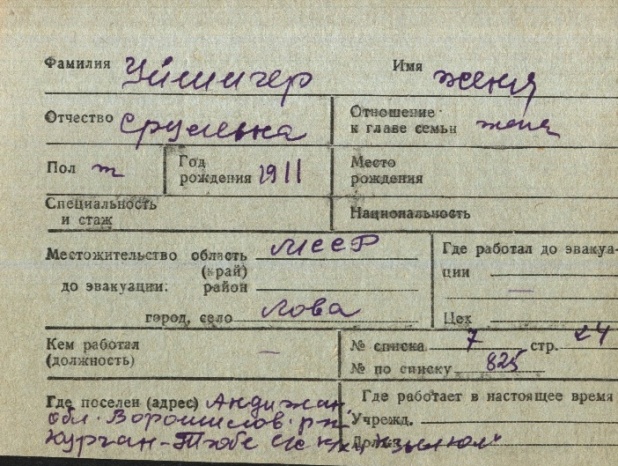 Фамилия Уймигер Имя Женя
Отчество Срулевна Отношение к главе семьи жена
Пол ж Год рождения 1911 Место рождения
Специальность и стаж Национальность
Местожительство область (край) МССР Где работал до эвакуа-
до эвакуации: район ции —
город, село Лова Цех
Кем работал (должность) — № списка 7 стр. 24
№ по списку 825
Где поселен (адрес) Андижан Где работает в настоящее время
обл. Ворошилов. р-н Учрежд.
Курган-Тюбе с/с к/х „Кзылюл"